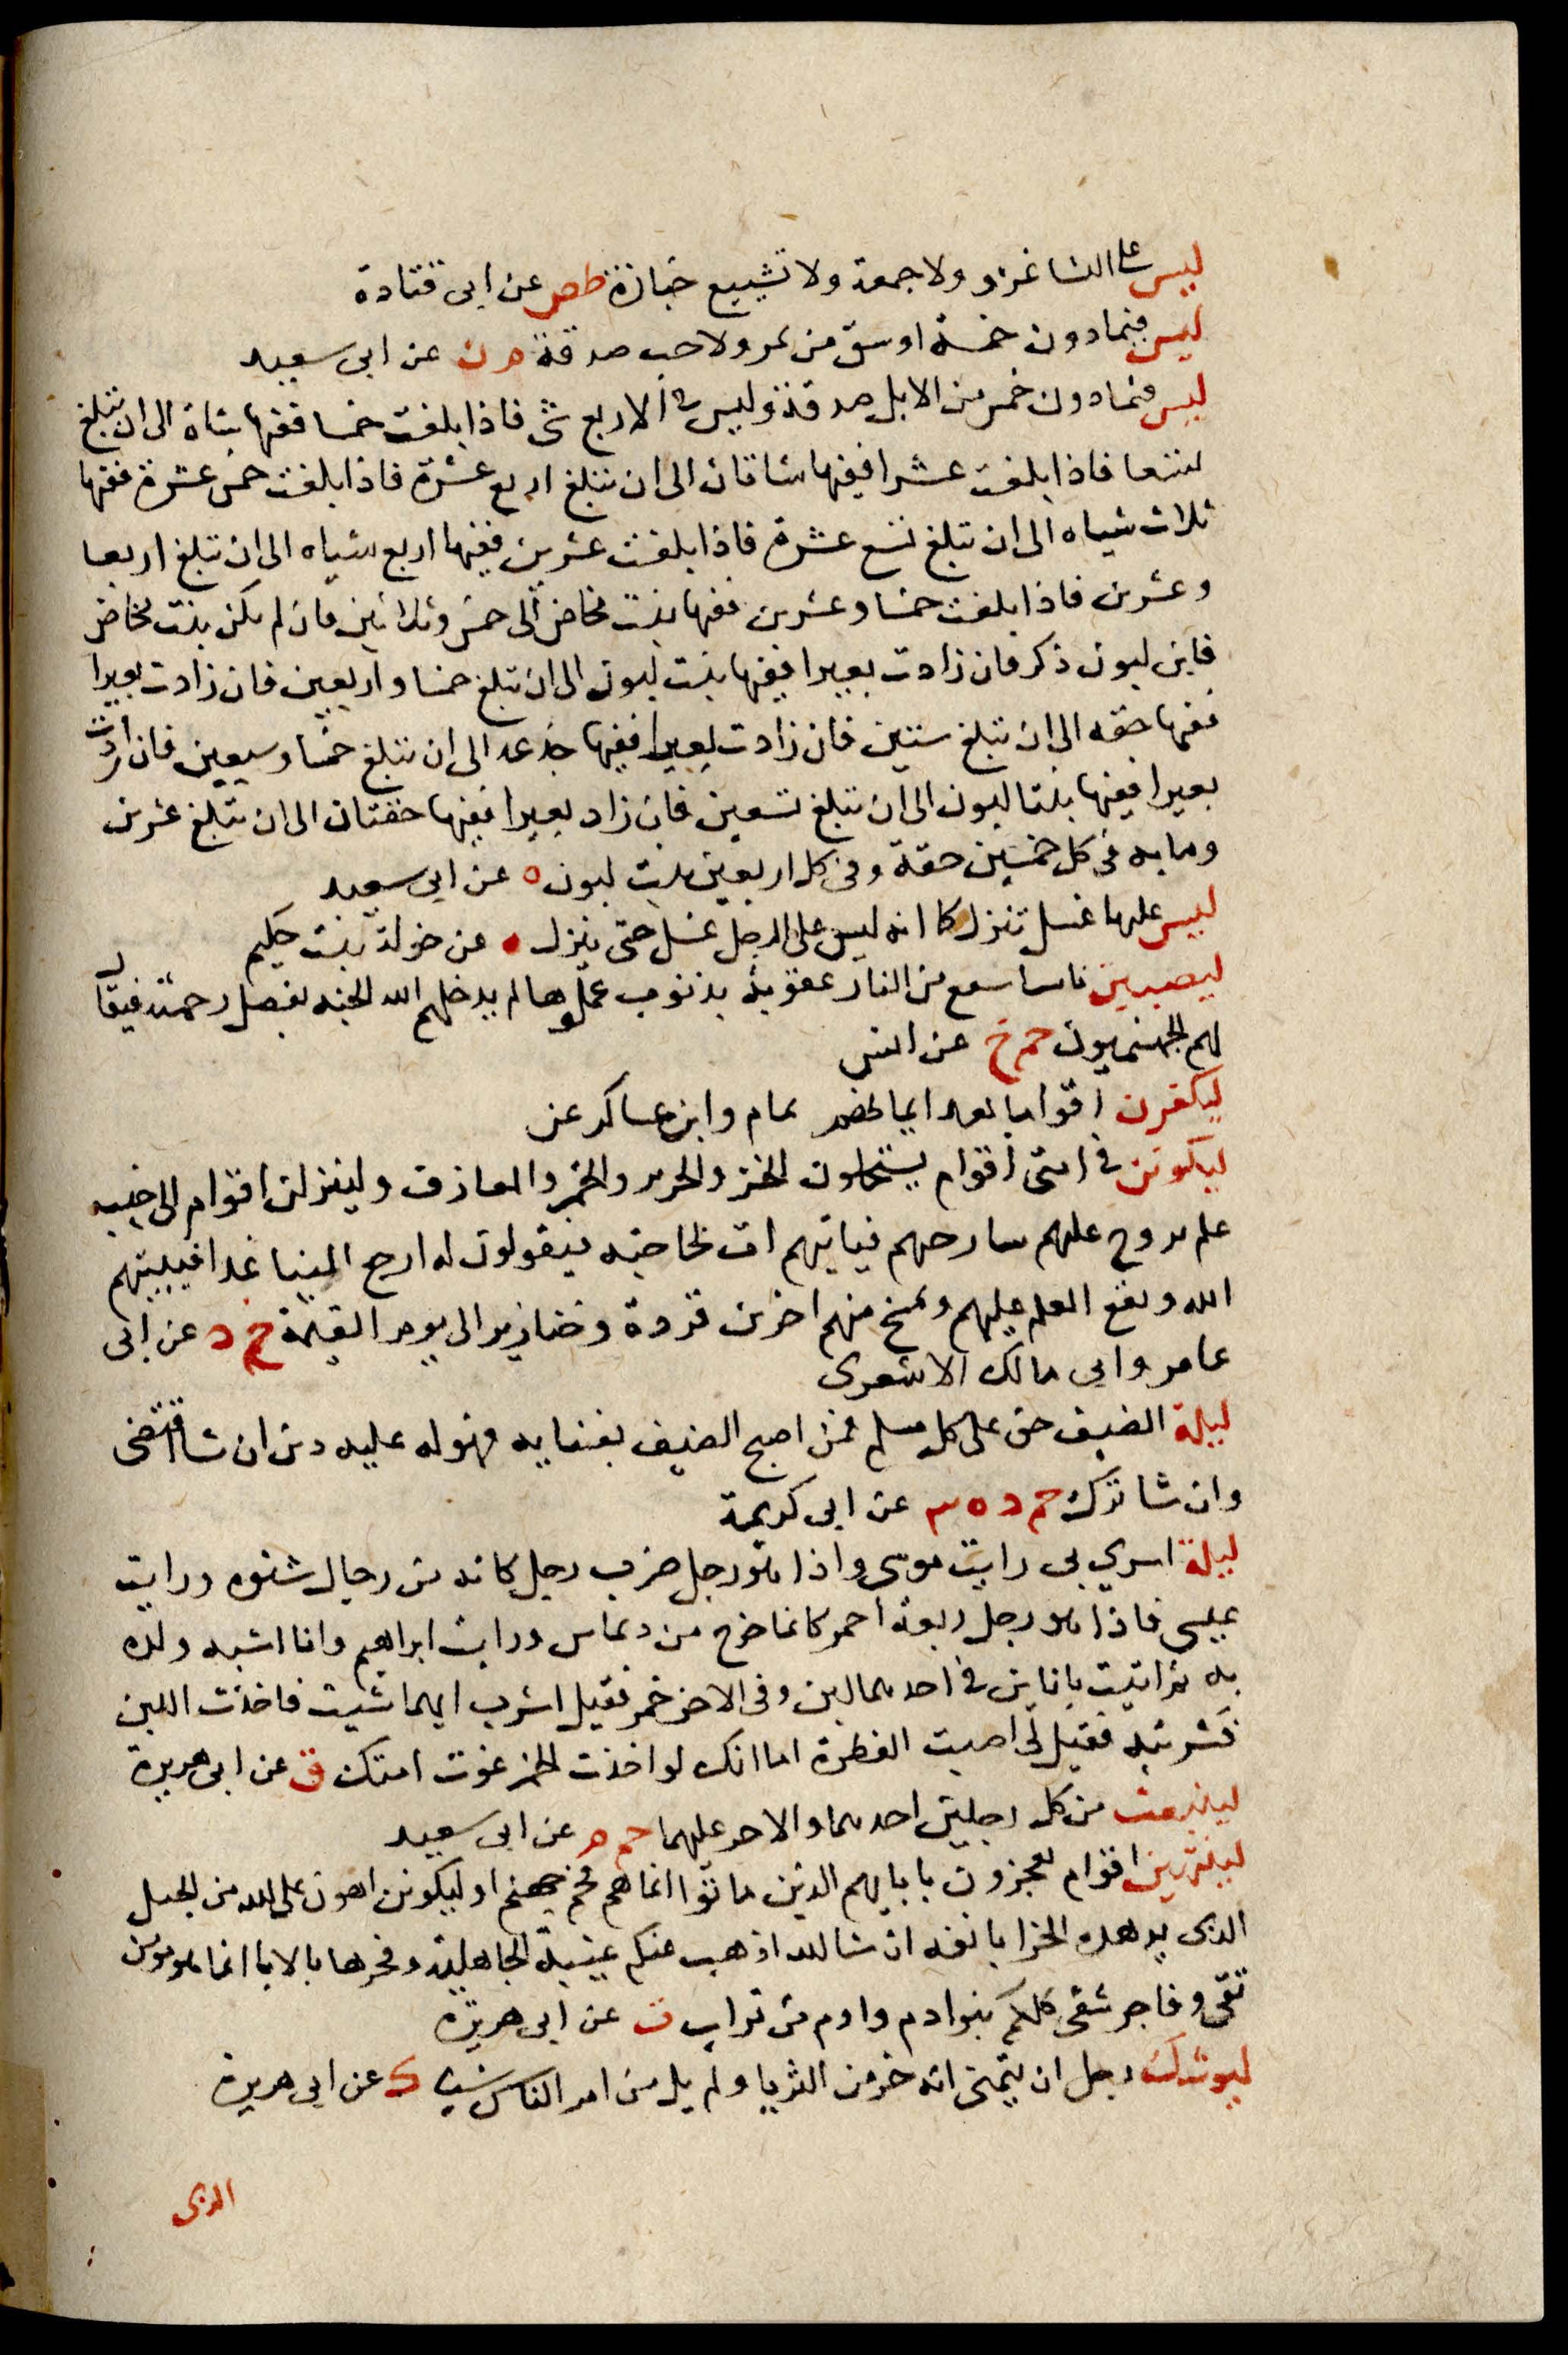 ليس على النسا غزو ولا جمعة ولا تشييع جنازة طص عن ابى قتادة
ليس فيما دون خمسة اوسق من تمر ولا حب صدقة م ن عن ابى سعيد
ليس فيما دون خمس من الابل صدقة وليس فى الاربع شى فاذا بلغت خمسا ففيها شاة الى ان تبلغ
تسعا فاذا بلغت عشرا ففيها شاتان الى ان تبلغ اربع عشرة فاذا بلغت خمس عشرة ففيها
ثلاث شياه الى ان تبلغ تسع عشرة فاذا بلغت عشرين ففيها اربع شياه الى ان تبلغ اربعا
وعشرين فاذا بلغت خمسا وعشرين ففيها بنت مخاض الى خمس وثلاثين فان لم يكن بنت مخاض
فابن لبون ذكر فان زادت بعيرا ففيها بنت لبون الى ان تبلغ خمسا واربعين فان زادت بعيرا
ففيها حقه الى ان تبلغ ستين فان زادت بعيرا ففيها جذعه الى ان تبلغ خمسا وسبعين فان زادت
بعيرا ففيها بنتا لبون الى ان تبلغ تسعين فان زاد بعيرا ففيها حقتان الى ان تبلغ عشرين
ومايه فى كل خمسين حقة وفى كل اربعين بنت لبون ه عن ابى سعيد
ليس عليها غسل تنزل كا انه ليس على الرجل غسل حتى ينزل ه عن خولة بنت حكيم
ليصيبن ناسا سفع من النار عقوبة بذنوب عملوها ثم يدخلهم الله الجنه بفضل رحمته فيقال
لهم الجهنميون حم خ عن انس
ليكفرن اقواما بعد ايمانهم تمام وابن عساكر عن
ليكونن فى امتى اقوام يستحلون الخز والحرير والخمر والمعازف ولينزلن اقوام الى جنب
علم يروح عليهم سارحهم فياتيهم ات لحاجته فيقولون له ارجع الينا غدا فيبيتهم
الله ويقع العلم عليهم ويمسخ منهم اخرين قردة وخنازير الى يوم القيمة خ د عن ابى
عامر وابى مالك الاشعرى
ليلة الضيف حق على كل مسلم فمن اصبح الضيف بفنايه فهو له عليه دين ان شا اقتضى
وان شا ترك حم د ه عن ابى كريمة
ليلة اسري بى رايت موسى واذا هو رجل ضرب رجل كانه من رجال شنوه ورايت
عيسى فاذا هو رجل ربعة احمر كانما خرج من ديماس ورايت ابراهيم وانا اشبه ولده
به ثم اتيت باناين فى احدهما لبن وفى الاخر خمر فقيل اشرب ايهما شيت فاخذت اللبن
فشربته فقيل لى اصبت الفطرة اما انك لو اخذت الخمر غوت امتك ق عن ابى هريرة
لينبعث من كل رجلين احدهما والاجر عليهما حم م عن ابى سعيد
لينتهين اقوام يفخرون باباىهم الذين ماتوا انما هم فحم جهنم او ليكونن اهون على الله من الجعل
الذى يدهده الخرا بانفه ان الله اذهب عنكم عيبة الجاهلية وفخرها بالابا انما هو مومن
تقى وفاجر شقى كلكم بنو ادم وادم من تراب ت عن ابى هريرة
ليوشك رجل ان يتمنى انه خر من الثريا ولم يل من امر الناس شيا ك عن ابى هريرة
الذى